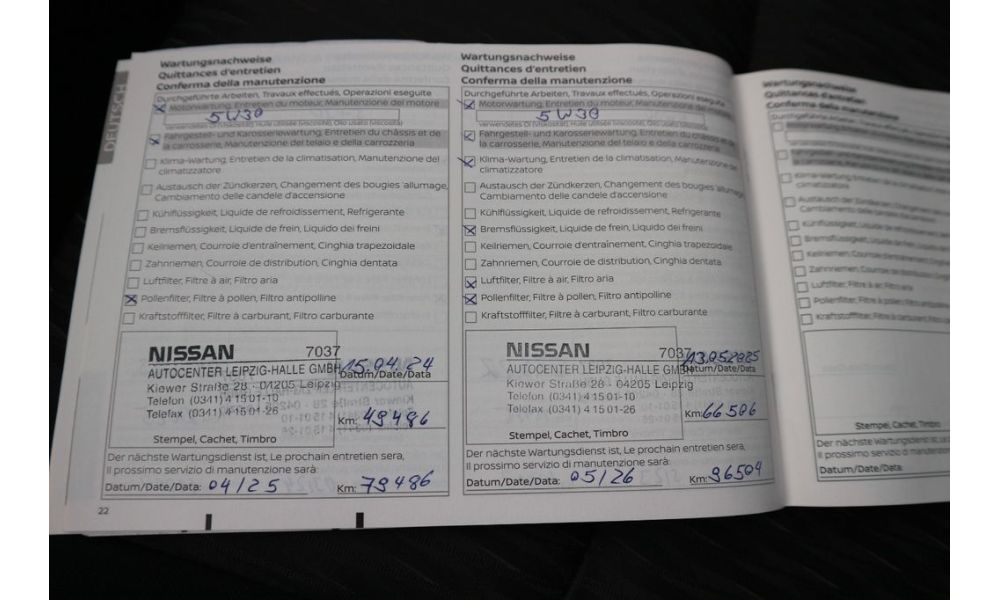 DEUTSCH
Wartungsnachweise
Quittances d'entretien
Conferma della manutenzione
Durchgeführte Arbeiten, Travaux effectués, Operazioni eseguite
Motorwartung, Entretien du moteur, Manutenzione del motore
5W30
Verwendetes Öl (Viskosität), Huile utilisée (viscosité), Olio usato (viscosità)
Fahrgestell- und Karosseriewartung, Entretien du châssis et de
la carrosserie, Manutenzione del telaio e della carrozzeria
Klima-Wartung, Entretien de la climatisation, Manutenzione del
climatizzatore
Austausch der Zündkerzen, Changement des bougies allumage,
Cambiamento delle candele d'accensione
Kühlflüssigkeit, Liquide de refroidissement, Refrigerante
Bremsflüssigkeit, Liquide de frein, Liquido dei freini
Keilriemen, Courroie d'entraînement, Cinghia trapezoidale
Zahnriemen, Courroie de distribution, Cinghia dentata
Luftfilter, Filtre à air, Filtro aria
Pollenfilter, Filtre à pollen, Filtro antipolline
Kraftstofffilter, Filtre à carburant, Filtro carburante
NISSAN 7037
AUTOCENTER LEIPZIG-HALLE GMBH
Kiewer Straße 28 · 04205 Leipzig
Telefon (0341) 4 15 01-10
Telefax (0341) 4 15 01-26
15.04.24
Datum/Date/Data
Km: 49486
Stempel, Cachet, Timbro
Der nächste Wartungsdienst ist, Le prochain entretien sera,
Il prossimo servizio di manutenzione sarà:
Datum/Date/Data: 04/25 Km: 79486
22
Wartungsnachweise
Quittances d'entretien
Conferma della manutenzione
Durchgeführte Arbeiten, Travaux effectués, Operazioni eseguite
Motorwartung, Entretien du moteur, Manutenzione del motore
5W30
Verwendetes Öl (Viskosität), Huile utilisée (viscosité), Olio usato (viscosità)
Fahrgestell- und Karosseriewartung, Entretien du châssis et de
la carrosserie, Manutenzione del telaio e della carrozzeria
Klima-Wartung, Entretien de la climatisation, Manutenzione del
climatizzatore
Austausch der Zündkerzen, Changement des bougies allumage,
Cambiamento delle candele d'accensione
Kühlflüssigkeit, Liquide de refroidissement, Refrigerante
Bremsflüssigkeit, Liquide de frein, Liquido dei freini
Keilriemen, Courroie d'entraînement, Cinghia trapezoidale
Zahnriemen, Courroie de distribution, Cinghia dentata
Luftfilter, Filtre à air, Filtro aria
Pollenfilter, Filtre à pollen, Filtro antipolline
Kraftstofffilter, Filtre à carburant, Filtro carburante
NISSAN 7037
AUTOCENTER LEIPZIG-HALLE GMBH
Kiewer Straße 28 · 04205 Leipzig
Telefon (0341) 4 15 01-10
Telefax (0341) 4 15 01-26
13.05.2025
Datum/Date/Data
Km: 66506
Stempel, Cachet, Timbro
Der nächste Wartungsdienst ist, Le prochain entretien sera,
Il prossimo servizio di manutenzione sarà:
Datum/Date/Data: 05/26 Km: 96504
Wartungsnachweise
Quittances d'entretien
Conferma della
climatizzatore
Austausch der Zündkerzen, Changement
Cambiamento delle candele d'accensione
Kühlflüssigkeit, Liquide de
Bremsflüssigkeit, Liquide de
Keilriemen, Courroie
Zahnriemen, Courroie de
Luftfilter, Filtre à air, Filtro aria
Pollenfilter, Filtre à pollen, Filtro
Kraftstofffilter, Filtre à carburant,
Stempel, Cachet, Timbro
Der nächste Wartungsdienst ist,
Il prossimo servizio di
Datum/Date/Data: